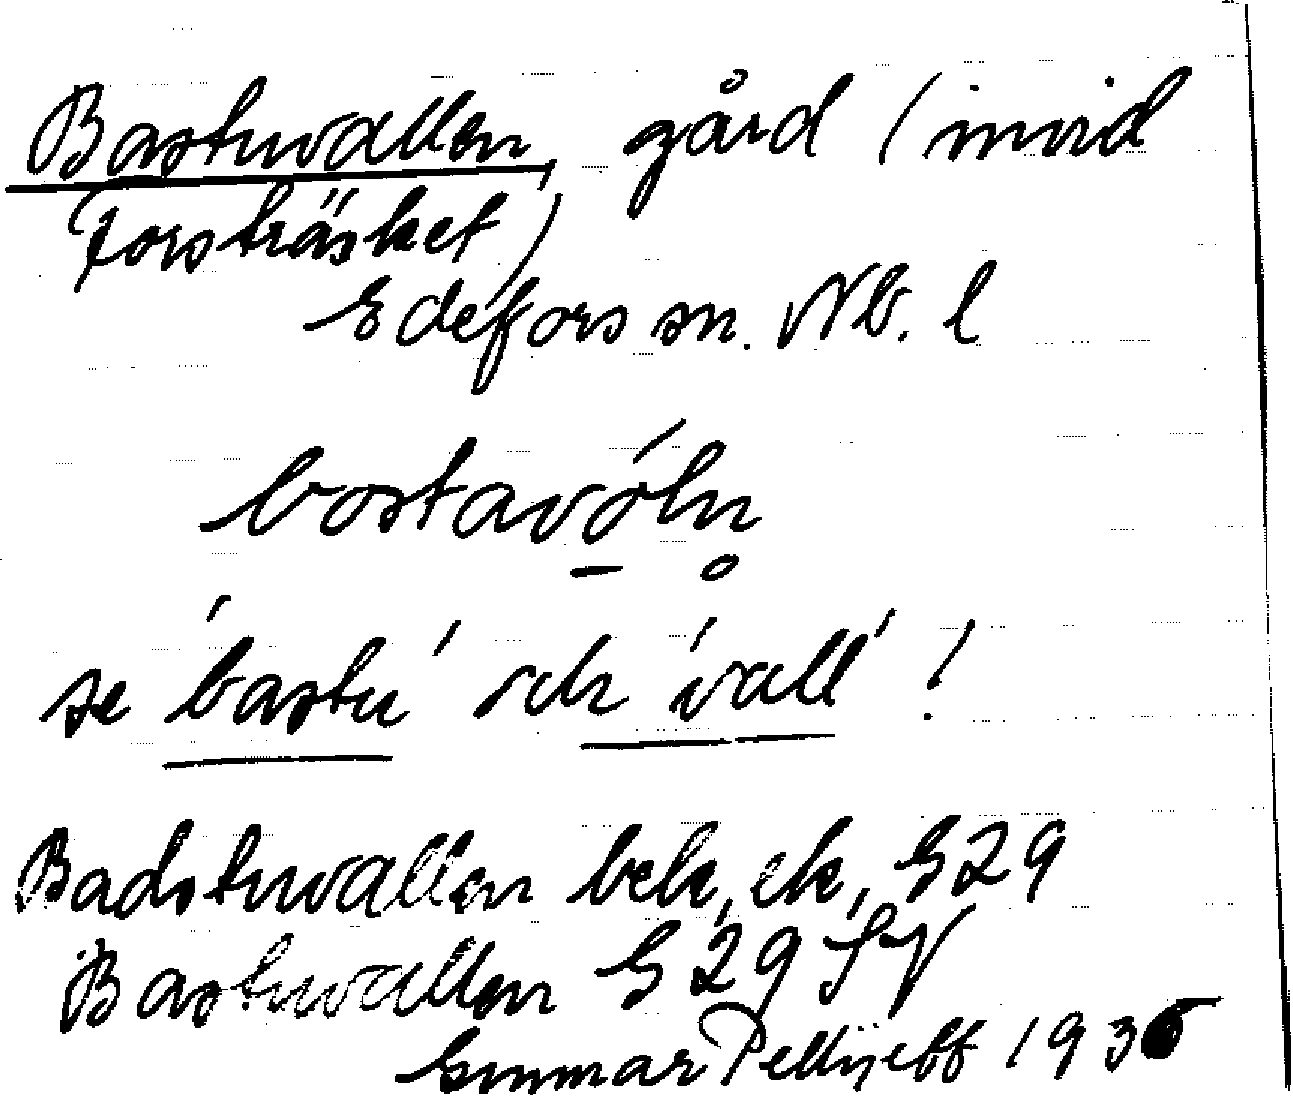 Bastuvallen, gård (invid
Forsträsket)
Edefors sn. Nb. l
bostavóln
se 'bastu' och 'vall' !
Badstuvallen bek, ek, G 29
Bastuvallen G 29 SV
Gunnar Pellijeff 1935